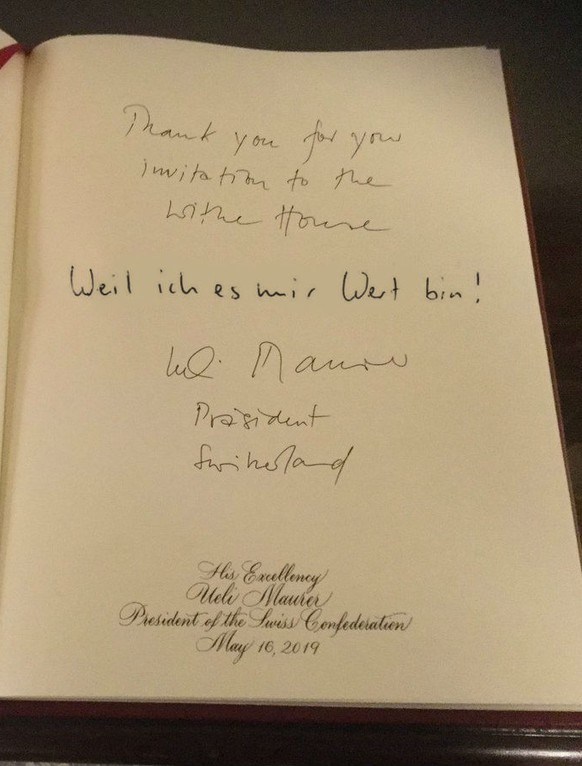 Thank you for your
invitation to the
Withe House
Weil ich es mir Wert bin!
Ueli Maurer
Präsident
Switzerland
His Excellency
Ueli Maurer
President of the Swiss Confederation
May 16, 2019